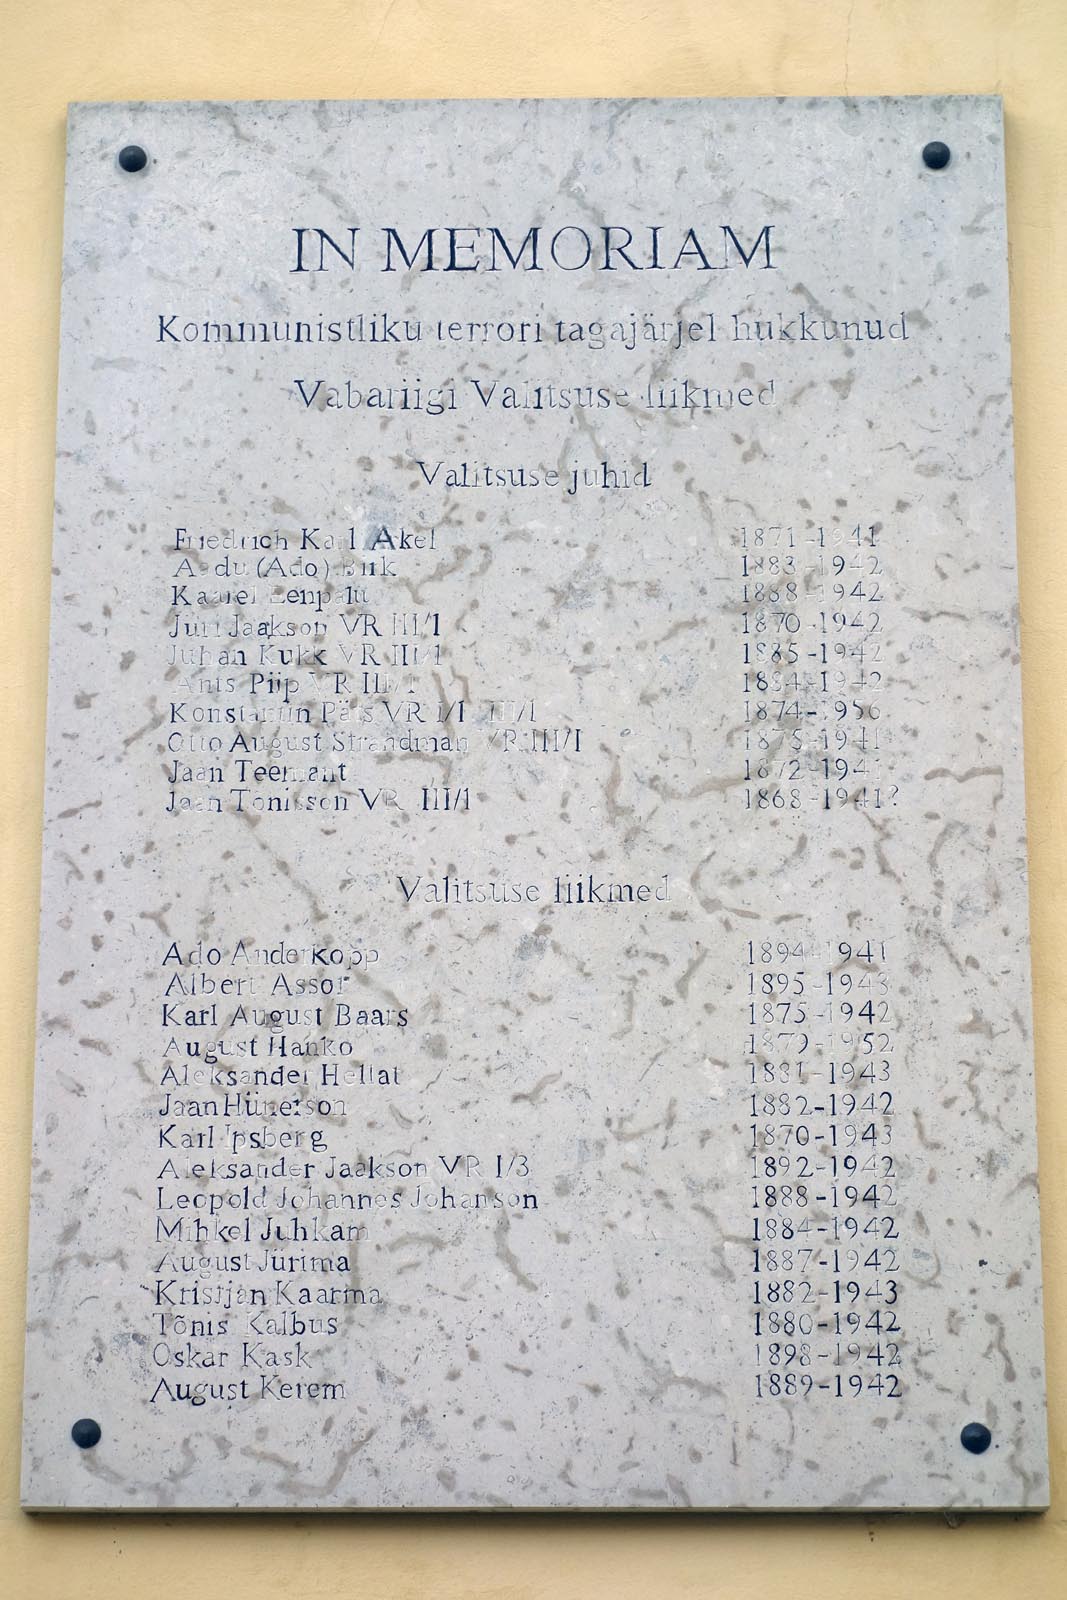 IN MEMORIAM
Kommunistliku terrori tagajärjel hukkunud
Vabariigi Valitsuse liikmed
Valitsuse juhid
Friedrich Karl Akel 1871-1941
Aadu (Ado) Birk 1883-1942
Kaarel Eenpalu 1888-1942
Jüri Jaakson VR III/1 1870-1942
Juhan Kukk VR III/1 1885-1942
Ants Piip VR III/1 1884-1942
Konstantin Päts VR I/1 III/1 1874-1956
Otto August Strandman VR III/1 1875-1941
Jaan Teemant 1872-1941?
Jaan Tõnisson VR III/1 1868-1941?
Valitsuse liikmed
Ado Anderkopp 1894-1941
Albert Assor 1895-1943
Karl August Baars 1875-1942
August Hanko 1879-1952
Aleksander Hellat 1881-1943
Jaan Hünerson 1882-1942
Karl Ipsberg 1870-1943
Aleksander Jaakson VR I/3 1892-1942
Leopold Johannes Johanson 1888-1942
Mihkel Juhkam 1884-1942
August Jürima 1887-1942
Kristjan Kaarma 1882-1943
Tõnis Kalbus 1880-1942
Oskar Kask 1898-1942
August Kerem 1889-1942